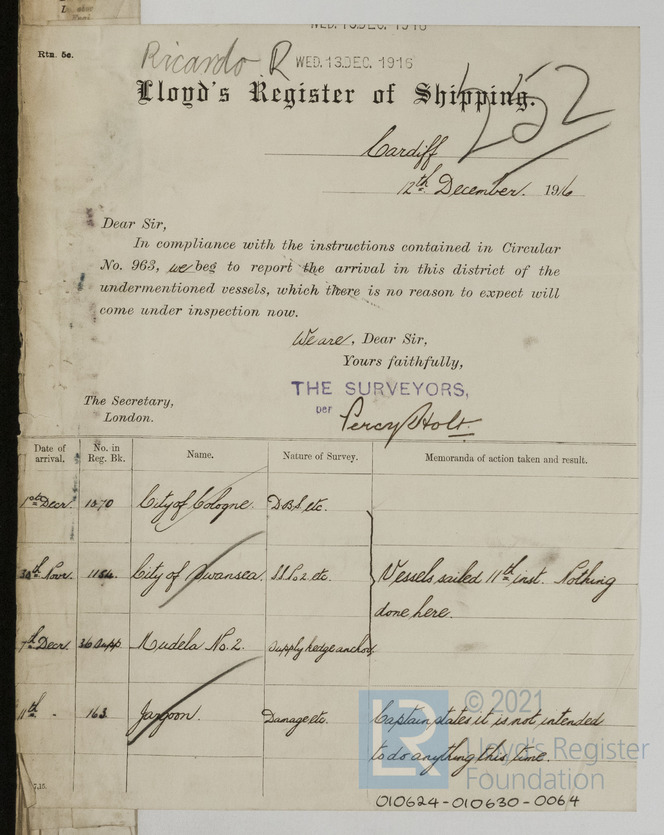 WED. 13 DEC. 1916
Rtn. 5c.
Ricardo R WED. 13 DEC. 1916
252
Lloyd's Register of Shipping.
Cardiff
12th December. 1916
Dear Sir,
In compliance with the instructions contained in Circular
No. 963, we beg to report the arrival in this district of the
undermentioned vessels, which there is no reason to expect will
come under inspection now.
We are, Dear Sir,
Yours faithfully,
THE SURVEYORS,
per Percy Holt.
The Secretary,
London.
Date of arrival. No. in Reg. Bk. Name. Nature of Survey. Memoranda of action taken and result.
1st Decr. 1570 City of Cologne. DBS, etc.
30th Novr. 1154. City of Swansea. SS No 2 etc. Vessels sailed 11th inst. Nothing
done here.
7th Decr. 36 Supp Mudela No. 2. Supply kedge anchor,
11th - 163. Jargoon. Damage etc. Captain states it is not intended
to do anything this time.
7,15.
LR © 2021
Lloyd's Register
Foundation
010624-010630-0064